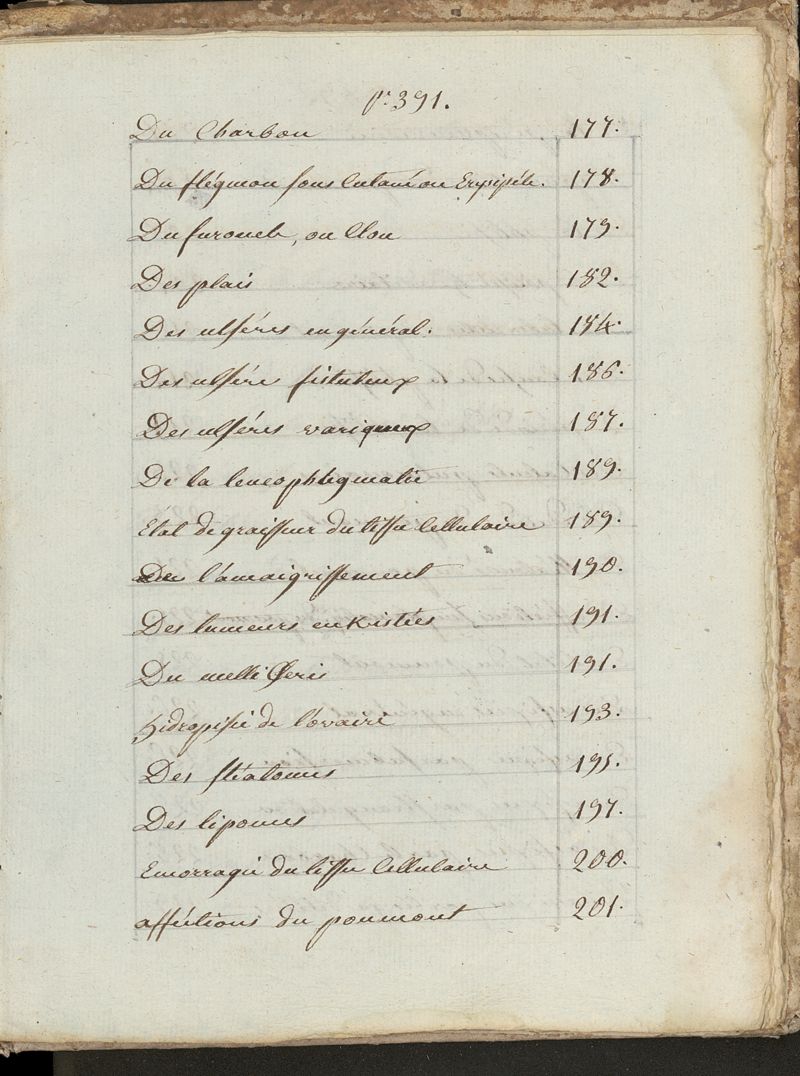 pe 391.
Du Charbon 177.
Du flégmon sous Cutané ou Erysipéle. 178.
Du furoncle, ou Clou 179.
Des plais 182.
Des ulséres en général. 184.
Des ulsére fistuleux 186.
Des ulséres variqueux 187.
De la leucophlegmatie 189.
Etat de graisseur du tissu Cellulaire 189.
De l'amaigrissement 190.
Des tumeurs enkistées 191.
Du melliCeris 191.
hidropisie de l'ovaire 193.
Des stéatomes 195.
Des lipomes 197.
Emorragie du tissu Cellulaire 200.
afféctions du poumont 201.